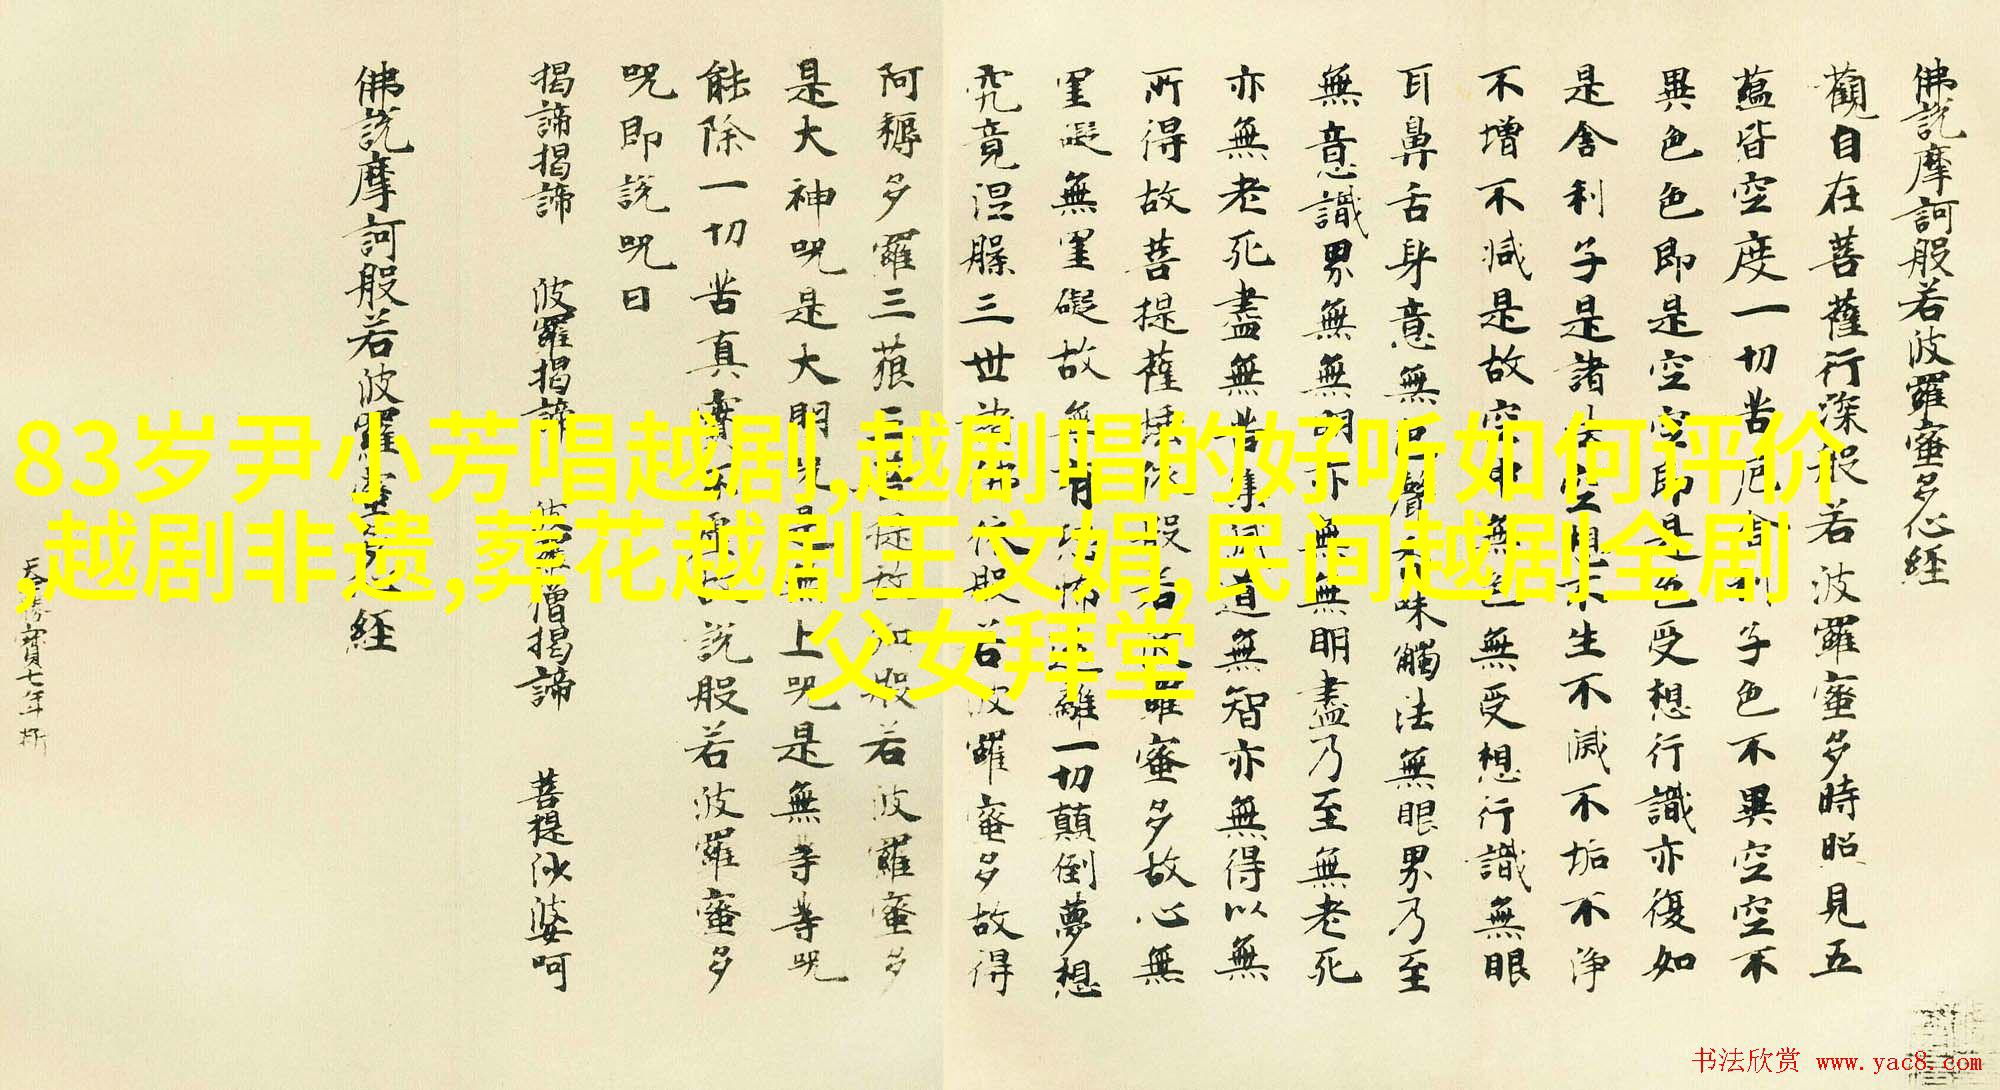 83岁尹小芳唱越剧,越剧唱的好听如何评价
,越剧非遗,葬花越剧王文娟,民间越剧全剧
父女拜堂
佛說摩訶般若波羅蜜多心經
觀自在菩薩行深般若波羅蜜多時照見五
蘊皆空度一切苦厄舍利子色不異空空不
異色色即是空空即是色受想行識亦復如
是舍利子是諸法空相不生不滅不垢不淨
不增不減是故空中無色無受想行識無眼
耳鼻舌身意無色聲香味觸法無眼界乃至
無意識界無無明亦無無明盡乃至無老死
亦無老死盡無苦集滅道無智亦無得以無
所得故菩提薩埵依般若波羅蜜多故心無
罣礙無罣礙故無有恐怖遠離一切顛倒夢想
究竟涅槃三世諸佛依般若波羅蜜多故得
阿耨多羅三藐三菩提故知般若波羅蜜多
是大神咒是大明咒是無上咒是無等等咒
能除一切苦真實不虛故說般若波羅蜜多
咒即說咒曰
揭諦揭諦 波羅揭諦 波羅僧揭諦 菩提沙婆呵
佛說摩訶般若波羅蜜多心經
天寶七年
书法欣赏 www.yac8.com